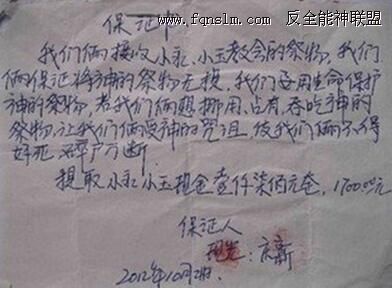 www.fqnslm.com 反全能神联盟
保证书
我们俩接收小礼、小玉教会的祭物，我们
俩保证将神的祭物无损，我们要用生命保护
神的祭物，若我们俩想挪用、占有、吞吃神的
祭物，让我们俩受神的咒诅，使我们俩不得
好死
提取小礼小玉现金壹仟柒佰元整，1700.00元
保证人
庆新
2012年10月2